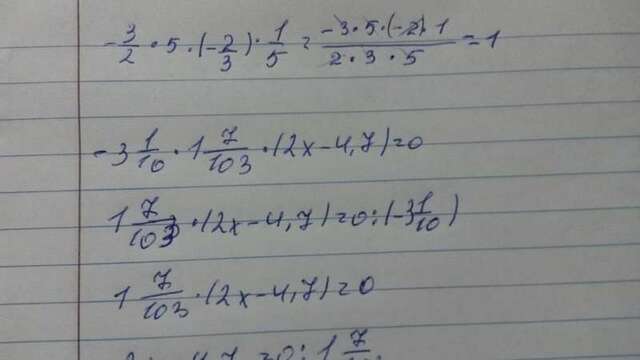 -3/2 · 5 · (-2/3) · 1/5 = -3·5·(-2)·1 / 2·3·5 = 1
-3 1/10 · 1 7/103 · (2x-4,7)=0
1 7/103 · (2x-4,7)=0:(-3 1/10)
1 7/103 · (2x-4,7)=0
4,7=0:1 7/